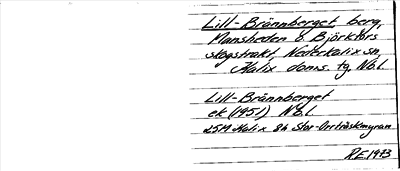 Lill-Brännberget berg,
Mansheden o Björkfors
skogstrakt, Nederkalix sn,
Kalix doms. tg, Nb.l.
Lill-Brännberget
ek (1951) Nb.l.
25M Kalix 8h Stor-Orrträskmyran
R.E 1973